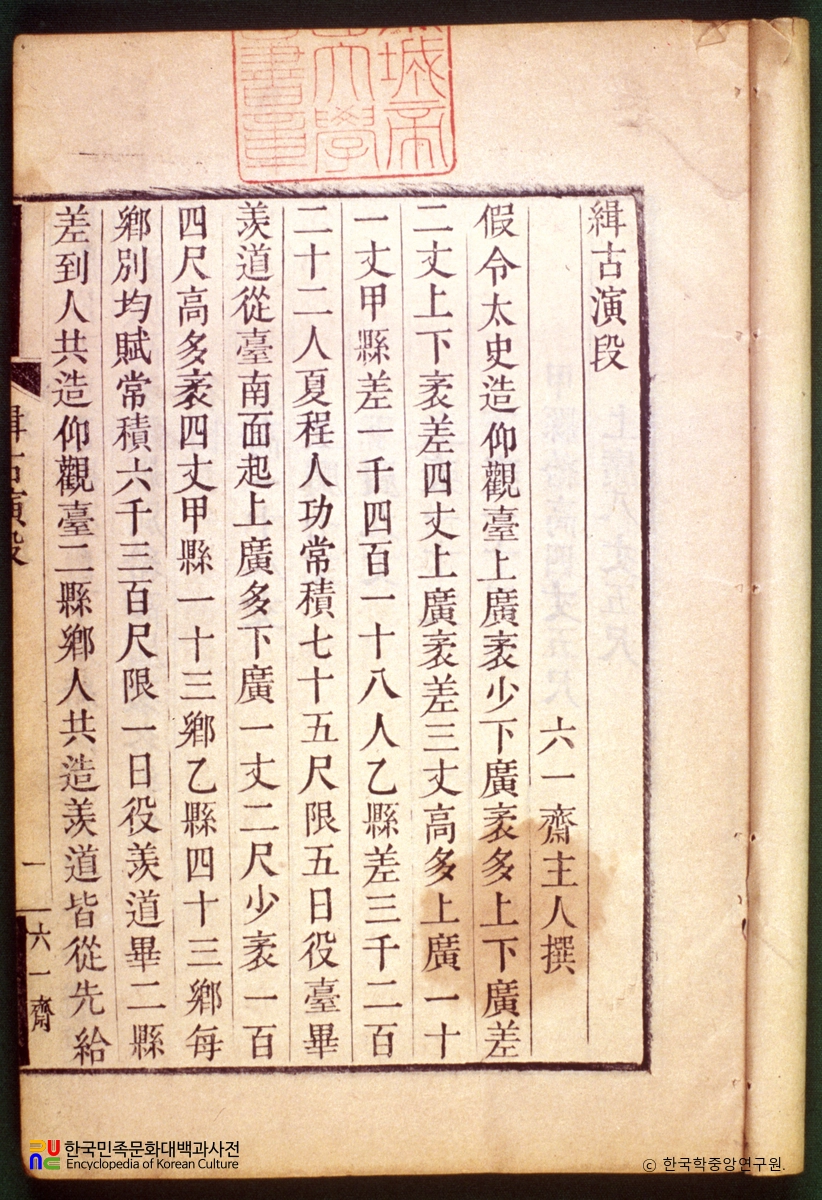 城帝
大學
書章
緝古演段
六一齋主人撰
假令太史造仰觀臺上廣袤少下廣袤多上下廣差
二丈上下袤差四丈上廣袤差三丈高多上廣一十
一丈甲縣差一千四百一十八人乙縣差三千二百
二十二人夏程人功常積七十五尺限五日役臺畢
羨道從臺南面起上廣多下廣一丈二尺少袤一百
四尺高多袤四丈甲縣一十三鄉乙縣四十三鄉每
鄉別均賦常積六千三百尺限一日役羨道畢二縣
差到人共造仰觀臺二縣鄉人共造羨道皆從先給
緝古演段
一
六一齋
한국민족문화대백과사전
Encyclopedia of Korean Culture
© 한국학중앙연구원.